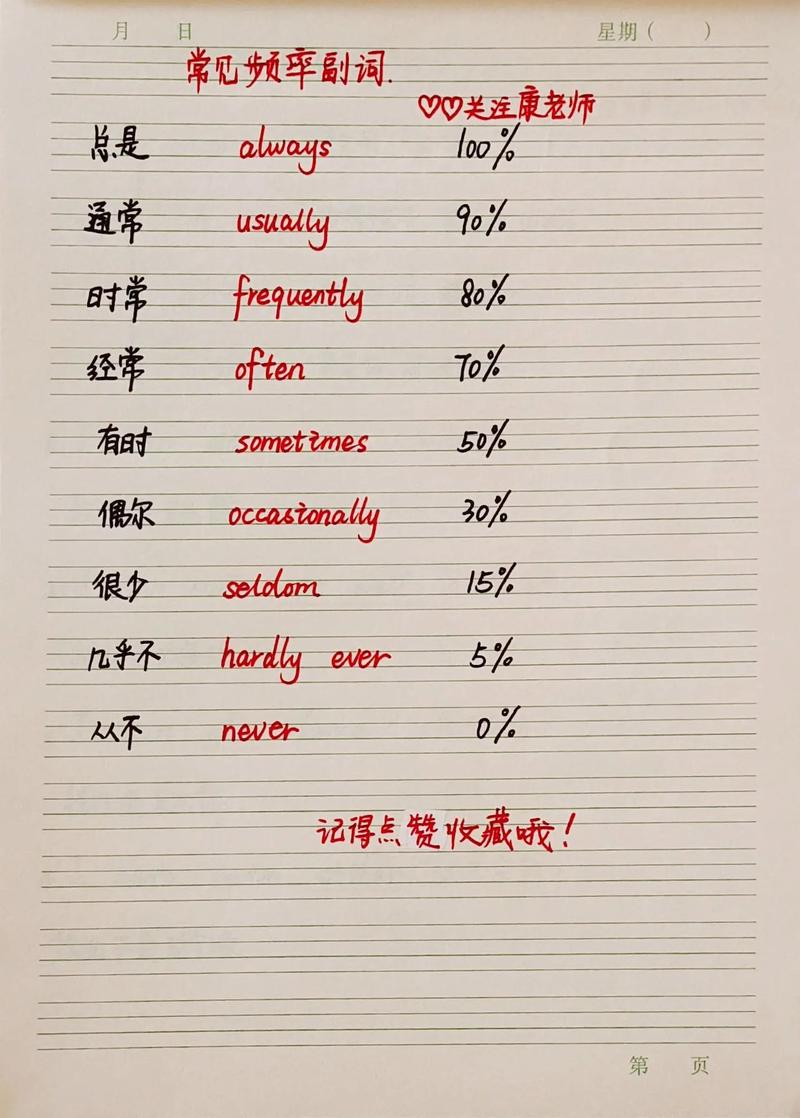 月 日 星期( )
常见频率副词.
♡♡关注康老师
总是 always 100%
通常 usually 90%
时常 frequently 80%
经常 often 70%
有时 sometimes 50%
偶尔 occasionally 30%
很少 seldom 15%
几乎不 hardly ever 5%
从不 never 0%
记得点赞收藏哦!
第 页